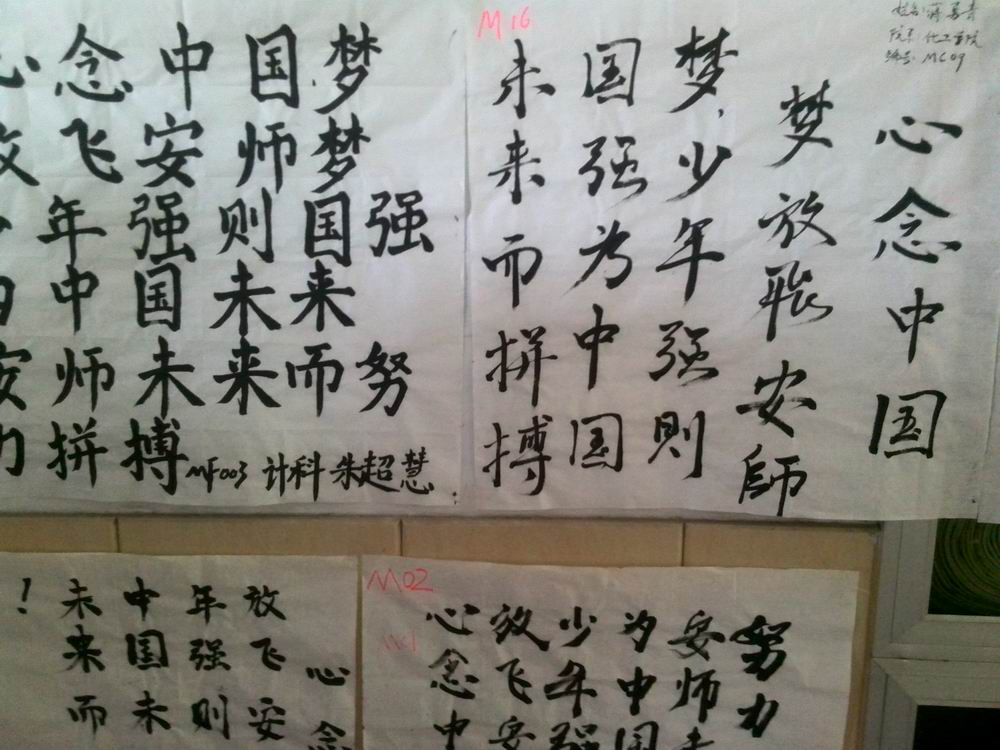 心念中国梦
放飞安师梦
年强则国强
中国未来
安师未来而努
力拼搏
MF003 计科 朱超慧
M16
院系: 化工学院
编号: MC09
心念中国
梦放飛安師
梦,少年强則
国强为中国
未来而拼搏
心念
放飞安
年强则
中国未
未来而
!
M02
心念中
放飞安
少年强
为中国
安师未
努力